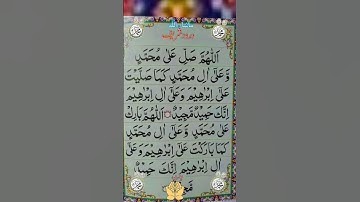 درود شریف
اَللّٰهُمَّ صَلِّ عَلٰى مُحَمَّدٍ
وَّعَلٰٓى اٰلِ مُحَمَّدٍ كَمَا صَلَّيْتَ
عَلٰٓى اِبْرٰهِيْمَ وَعَلٰٓى اٰلِ اِبْرٰهِيْمَ
اِنَّكَ حَمِيْدٌ مَّجِيْدٌ اَللّٰهُمَّ بَارِكْ
عَلٰى مُحَمَّدٍ وَّعَلٰٓى اٰلِ مُحَمَّدٍ
كَمَا بَارَكْتَ عَلٰٓى اِبْرٰهِيْمَ وَعَلٰٓى
اٰلِ اِبْرٰهِيْمَ اِنَّكَ حَمِيْدٌ